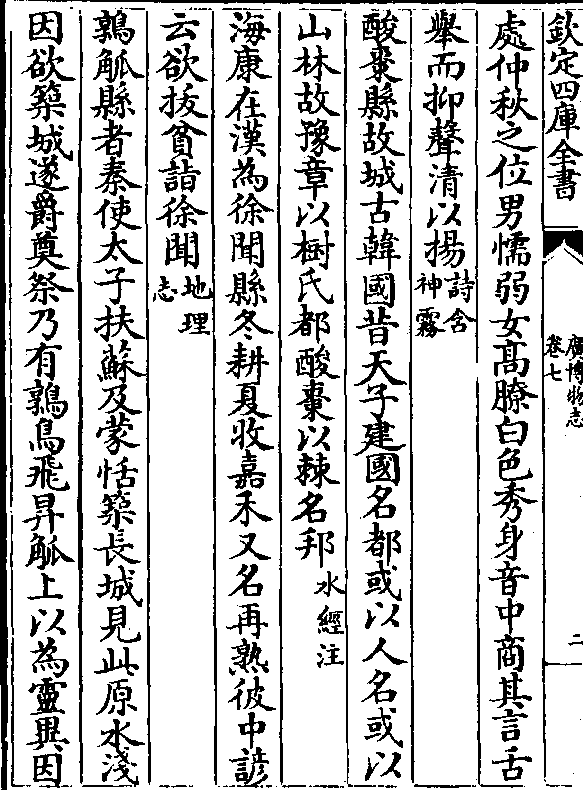 欽定四庫全書
廣博物志
卷七
二
處仲秋之位男懦弱女高膫白色秀身音中商其言舌
舉而抑聲清以揚詩含神霧
酸棗縣故城古韓國昔天子建國名都或以人名或以
山林故豫章以樹氏都酸棗以棘名邦水經注
海康在漢為徐聞縣冬耕夏收嘉禾又名再熟彼中諺
云欲拔貧詣徐聞地理志
鶉觚縣者秦使太子扶蘇及蒙恬築長城見此原水淺
因欲築城遂爵奠祭乃有鶉鳥飛昇觚上以為靈異因